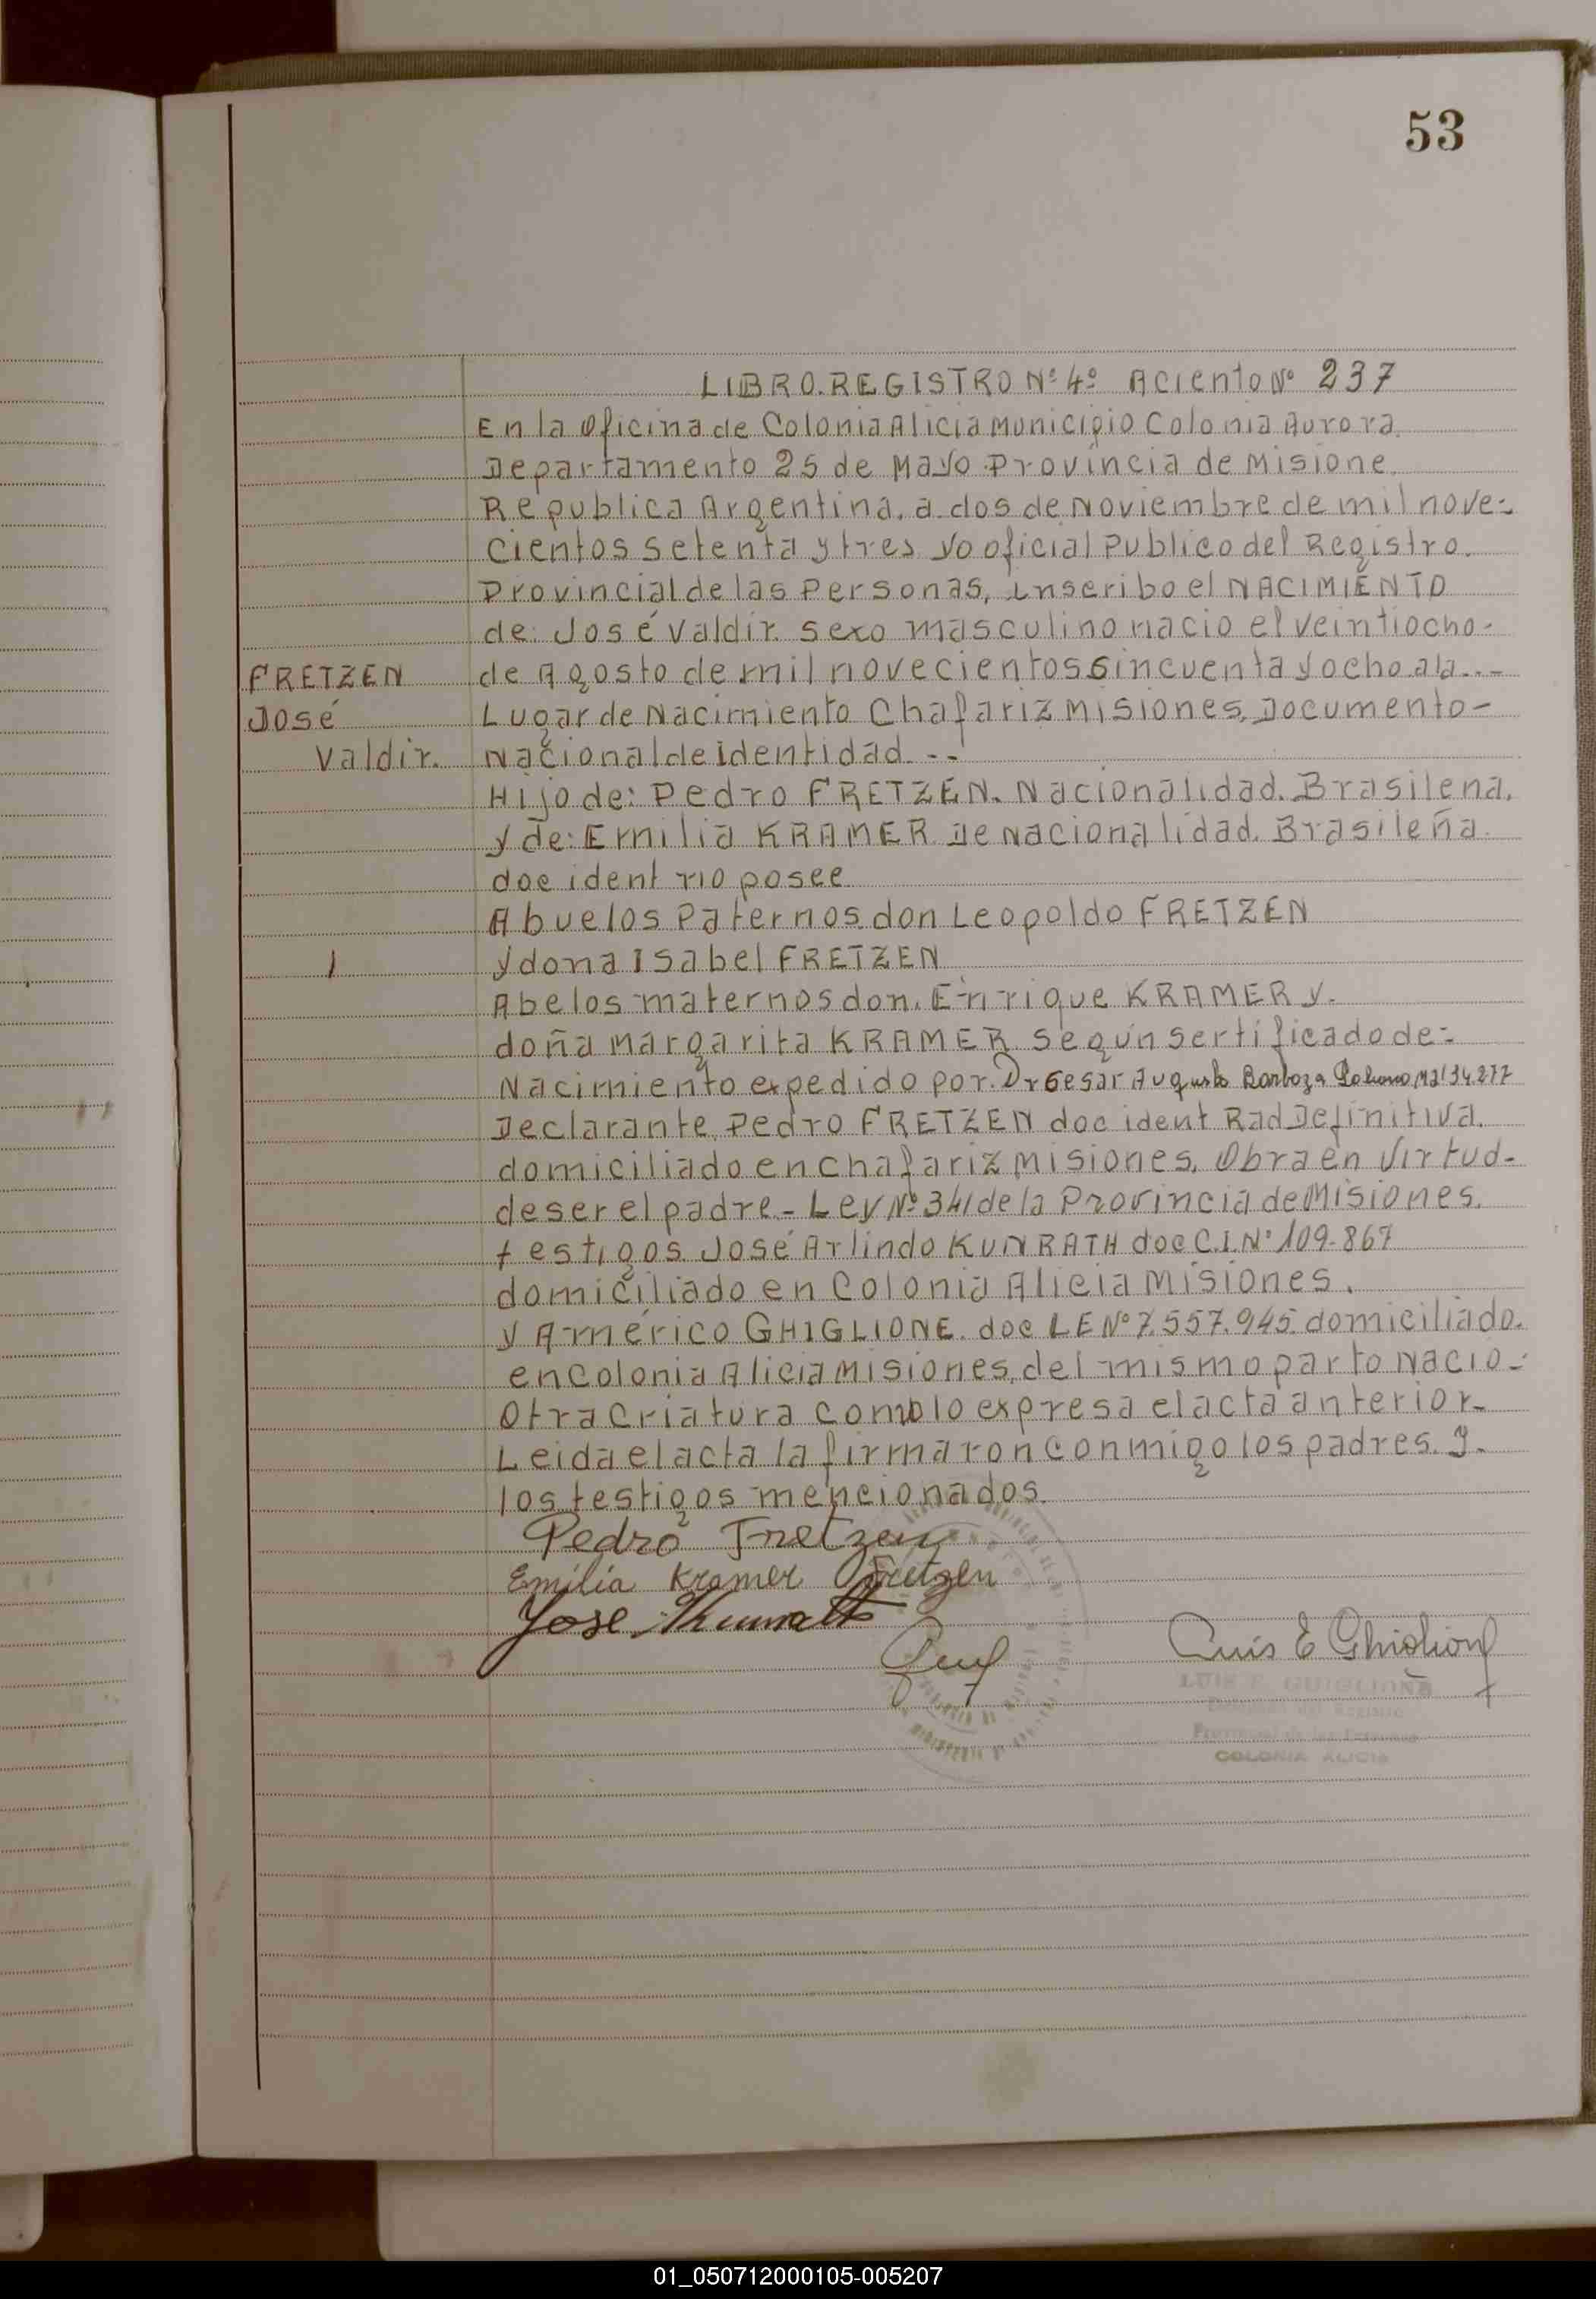 53
LIBRO.REGISTRO Nº 4º Aciento Nº 237
En la Oficina de Colonia Alicia Municipio Colonia Aurora.
Departamento 25 de Mayo Provincia de Misione.
Republica Argentina, a dos de Noviembre de mil nove-
cientos setenta y tres yo oficial Publico del Registro.
Provincial de las Personas, inscribo el NACIMIENTO
de: José Valdir. sexo masculino nacio el veintiocho-
FRETZEN de Agosto de mil novecientos cincuenta y ocho a la...-
José Lugar de Nacimiento Chafariz Misiones, Documento-
Valdir. Nacional de Identidad. --
Hijo de: Pedro FRETZEN. Nacionalidad. Brasilena,
y de: Emilia KRAMER De nacionalidad. Brasileña.
doc ident no posee
Abuelos Paternos don Leopoldo FRETZEN
y dona Isabel FRETZEN
Abelos maternos don. Enrique KRAMER y.
doña Margarita KRAMER según sertificado de:
Nacimiento expedido por. Dr Cesar Augusto Barboza
Declarante, Pedro FRETZEN doc ident Rad Definitiva.
domiciliado en chafariz misiones, Obra en Virtud-
de ser el padre.- Ley Nº 341 de la Provincia de Misiones.
testigos José Arlindo KUNRATH doc C.I. Nº 109.867
domiciliado en Colonia Alicia Misiones.
y Américo GHIGLIONE. doc LE Nº 7.557.945 domiciliado.
en Colonia Alicia Misiones, del mismo parto Nacio-
Otra Criatura como lo expresa el acta anterior-
Leida el acta la firmaron conmigo los padres. y.
los testigos mencionados.
Pedro Fretzen
Emilia Kramer Fretzen
Jose Kunrath
Luis E Ghiglione
LUIS E. GUIGLIONE
Provincial de las Personas
COLONIA ALICIA
01_050712000105-005207